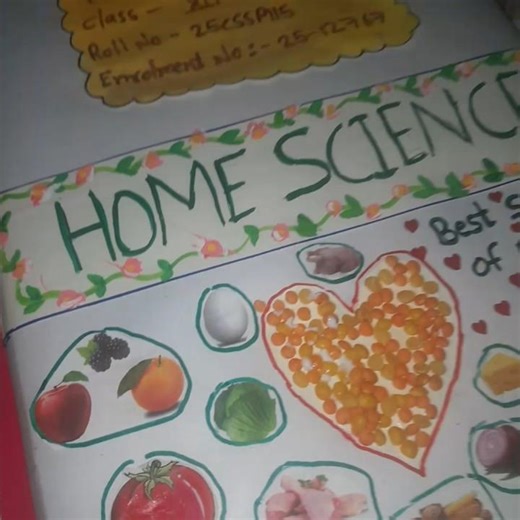 Class -
Roll No - 25CSSA115
Enrolment No :- 25-12767
HOME SCIENCE
Best
of